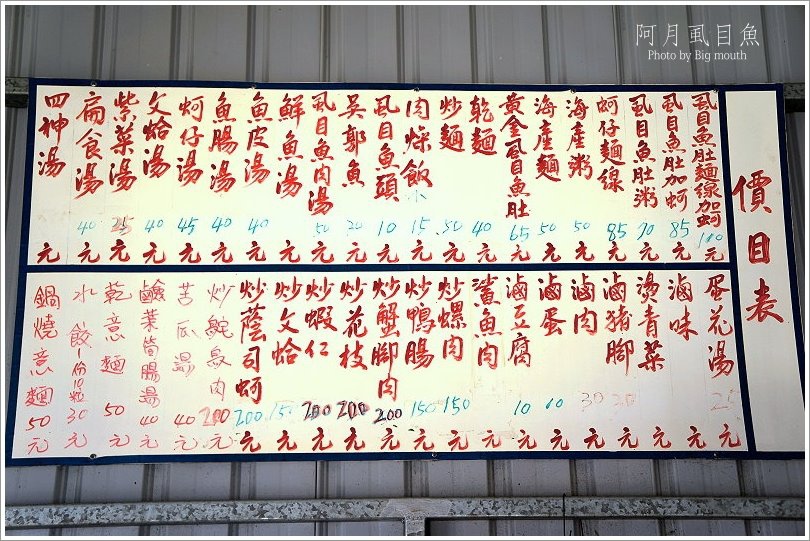 阿月虱目魚
Photo by Big mouth
價目表
虱目魚肚麵線加蚵 100 元
虱目魚肚加蚵 85 元
虱目魚肚粥 70 元
蚵仔麵線 85 元
海產粥 50 元
海產麵 50 元
黃金虱目魚肚 65 元
乾麵 40 元
炒麵 50 元
肉燥飯小 15 元
虱目魚頭 10 元
吳郭魚 20 元
虱目魚肉湯 50 元
鮮魚湯 元
魚皮湯 40 元
魚腸湯 40 元
蚵仔湯 45 元
文蛤湯 40 元
紫菜湯 25 元
扁食湯 40 元
四神湯 元
蛋花湯 元
滷味 元
燙青菜 元
滷豬腳 30 元
滷肉 30 元
滷蛋 10 元
滷豆腐 10 元
鯊魚肉 元
炒螺肉 150 元
炒鴨腸 150 元
炒蟹腳肉 200 元
炒花枝 200 元
炒蝦仁 200 元
炒文蛤 150 元
炒蔭司蚵 200 元
炒鴕鳥肉 200 元
苦瓜湯 40 元
鹹菜筍腸湯 40 元
乾意麵 50 元
水餃1份10粒 30 元
鍋燒意麵 50 元